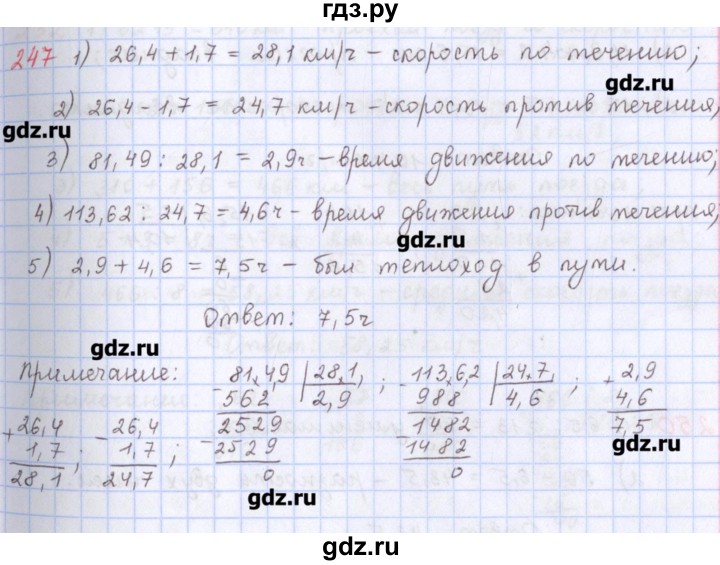 гдз.ру
247 1) 26,4 + 1,7 = 28,1 км/ч – скорость по течению;
gdz.ru
2) 26,4 – 1,7 = 24,7 км/ч – скорость против течения;
gdz.ru
3) 81,49 : 28,1 = 2,9ч – время движения по течению;
4) 113,62 : 24,7 = 4,6ч – время движения против течения;
gdz.ru
5) 2,9 + 4,6 = 7,5ч – был теплоход в пути.
Ответ: 7,5ч
gdz.ru
Примечание: 81,4,9 28,1, ; 113,6,2 24,7, ; 2,9
562 2,9 988 4,6 + 4,6
+ 26,4 – 26,4 2529 1482 7,5
1,7 ; 1,7 ; – 2529 – 1482 gdz.ru
28,1 24,7 0 0
gdz.ru
gdz.ru